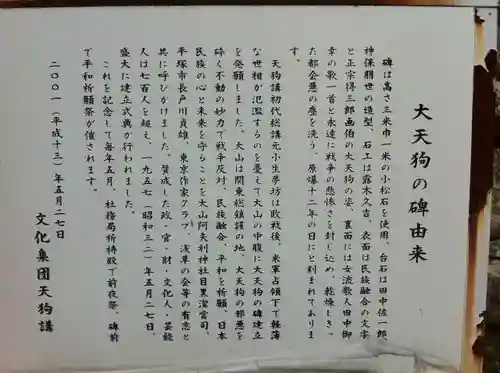 大天狗の碑由来
碑は高さ三米巾一米の小松石を使用、台石は田中佐一郎、
神保朋世の造型、石工は露木久吉、表面は民族融合の文字
と正宗得三郎画伯の大天狗の姿、裏面には女流歌人田中御
幸の歌一首と永遠に戦争の悲惨さを封じ込め、乾燥しきっ
た都会悪の塵を洗う、原爆十二年の日にと刻まれておりま
す。
天狗講初代総講元小生夢坊は敗戦後、米軍占領下で軽薄
な世相が氾濫するのを憂えて大山の中腹に大天狗の碑建立
を発願しました。大山は関東総鎮護の地、大天狗の邪悪を
砕く不動の妙力で戦争反対、民族融合、平和を祈願、日本
民族の心と未来を守ることを大山阿夫利神社目黒潔宮司、
平塚市長戸川貞雄、東京作家クラブ、浅草の会等の有志と
共に呼びかけました。賛成した政・官・財・文化人・芸能
人は七百人を超え、一九五七(昭和三二)年五月二七日、
盛大に建立式典が行われました。
これを記念して毎年五月、社務局祈祷殿で前夜祭、碑前
で平和祈願祭が催されます。
二〇〇一(平成十三)年五月二七日
文化集団天狗講